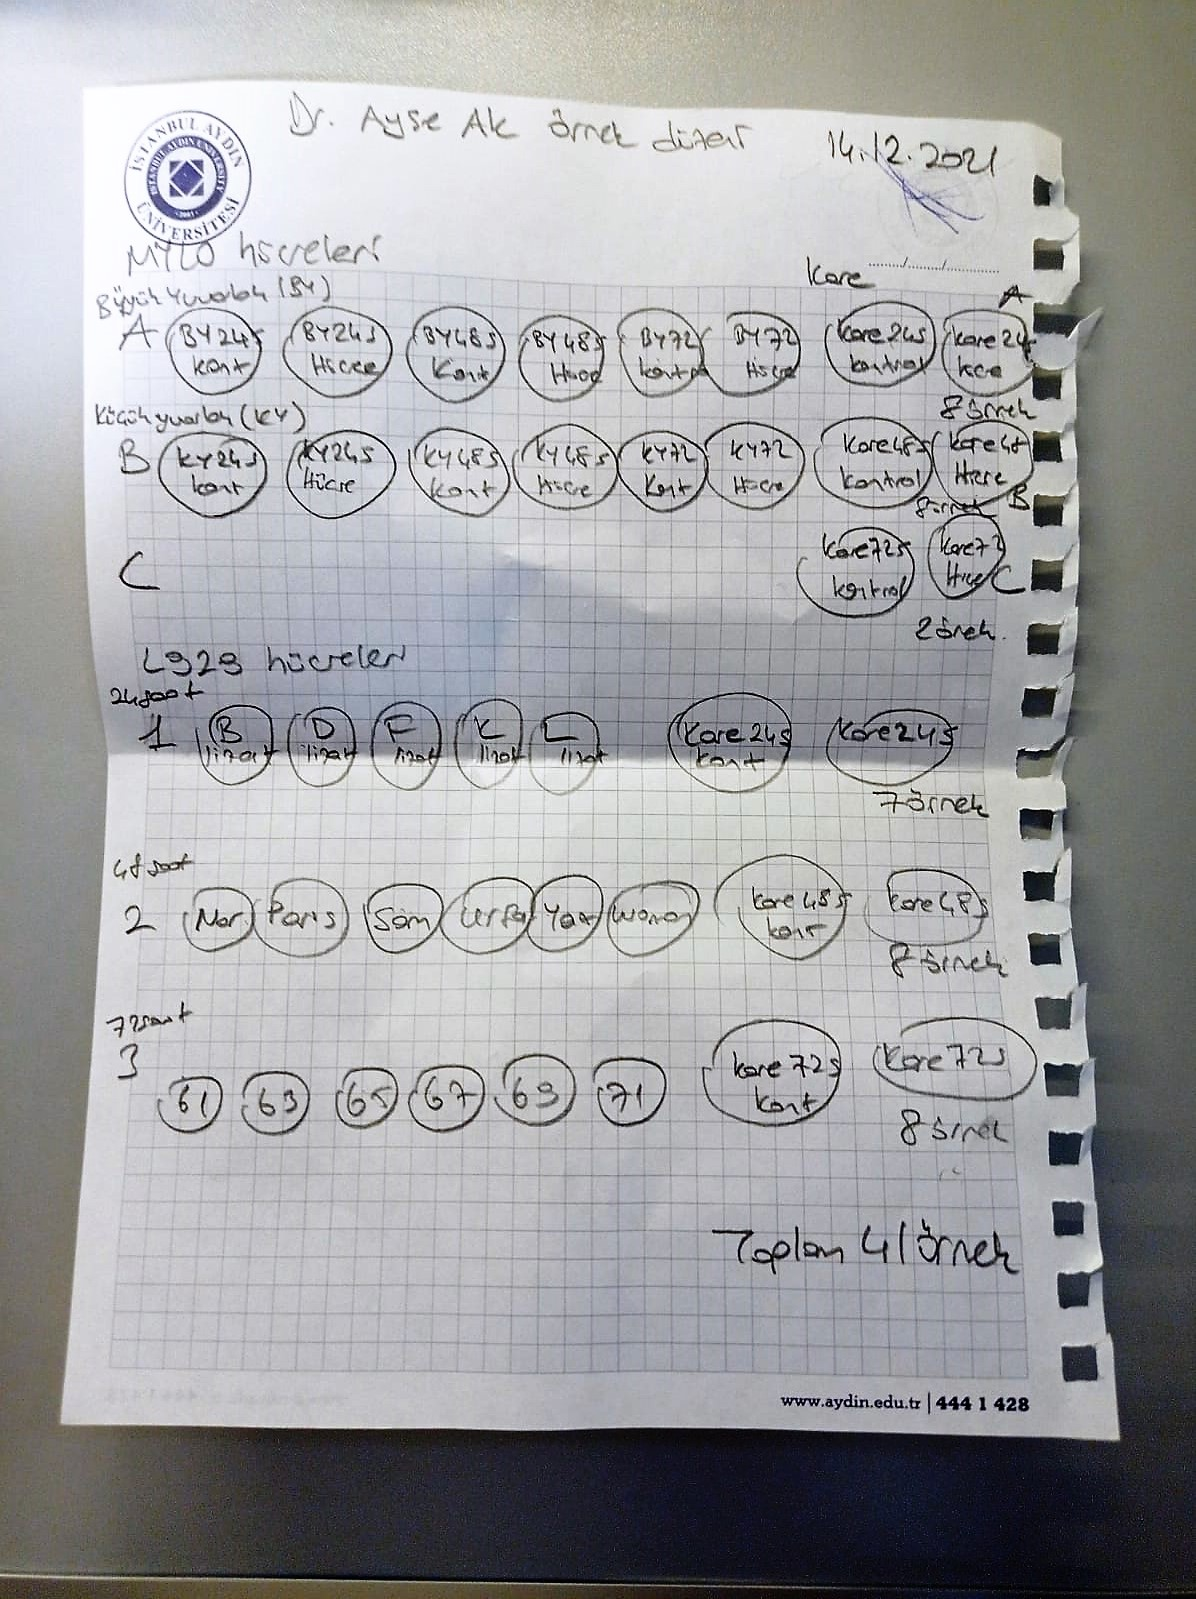 Dr. Ayşe Ak örnek düzeni
14.12.2021
İSTANBUL AYDIN ÜNİVERSİTESİ
İSTANBUL AYDIN UNIVERSITY
MYLO hücreleri
Kare
Büyük Yuvarlak (BY)
A
A BY 24s kont BY 24s Hücre BY 48s Kont BY 48s Hücre BY 72 kontrol BY 72 Hücre Kare 24s kontrol kare 24
8 örnek
Küçük yuvarlak (KY)
B KY 24s kont KY 24s Hücre KY 48s kont KY 48s Hücre KY 72 Kont KY 72 Hücre Kare 48s kontrol kare 48 Hücre
8 örnek B
C Kare 72s kontrol Kare 72 Hücre C
2 örnek
L929 hücreleri
24 saat
1 B lizat D lizat F lizat K lizat L lizat Kare 24s kont Kare 24s
7 örnek
48 saat
2 Mor Paris Sam Urfa Yat Woman kare 48s kont kare 48s
8 örnek
72 saat
3 61 63 65 67 69 71 kare 72s kont Kare 72s
8 örnek
Toplam 41 örnek
www.aydin.edu.tr | 444 1 428